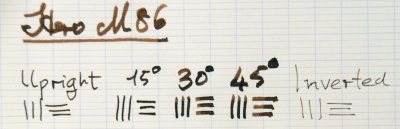 Hero M86
Upright 15° 30° 45° Inverted